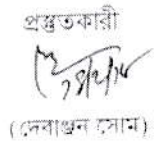 প্রস্তুতকারী
(দেবাঞ্জন সোম)